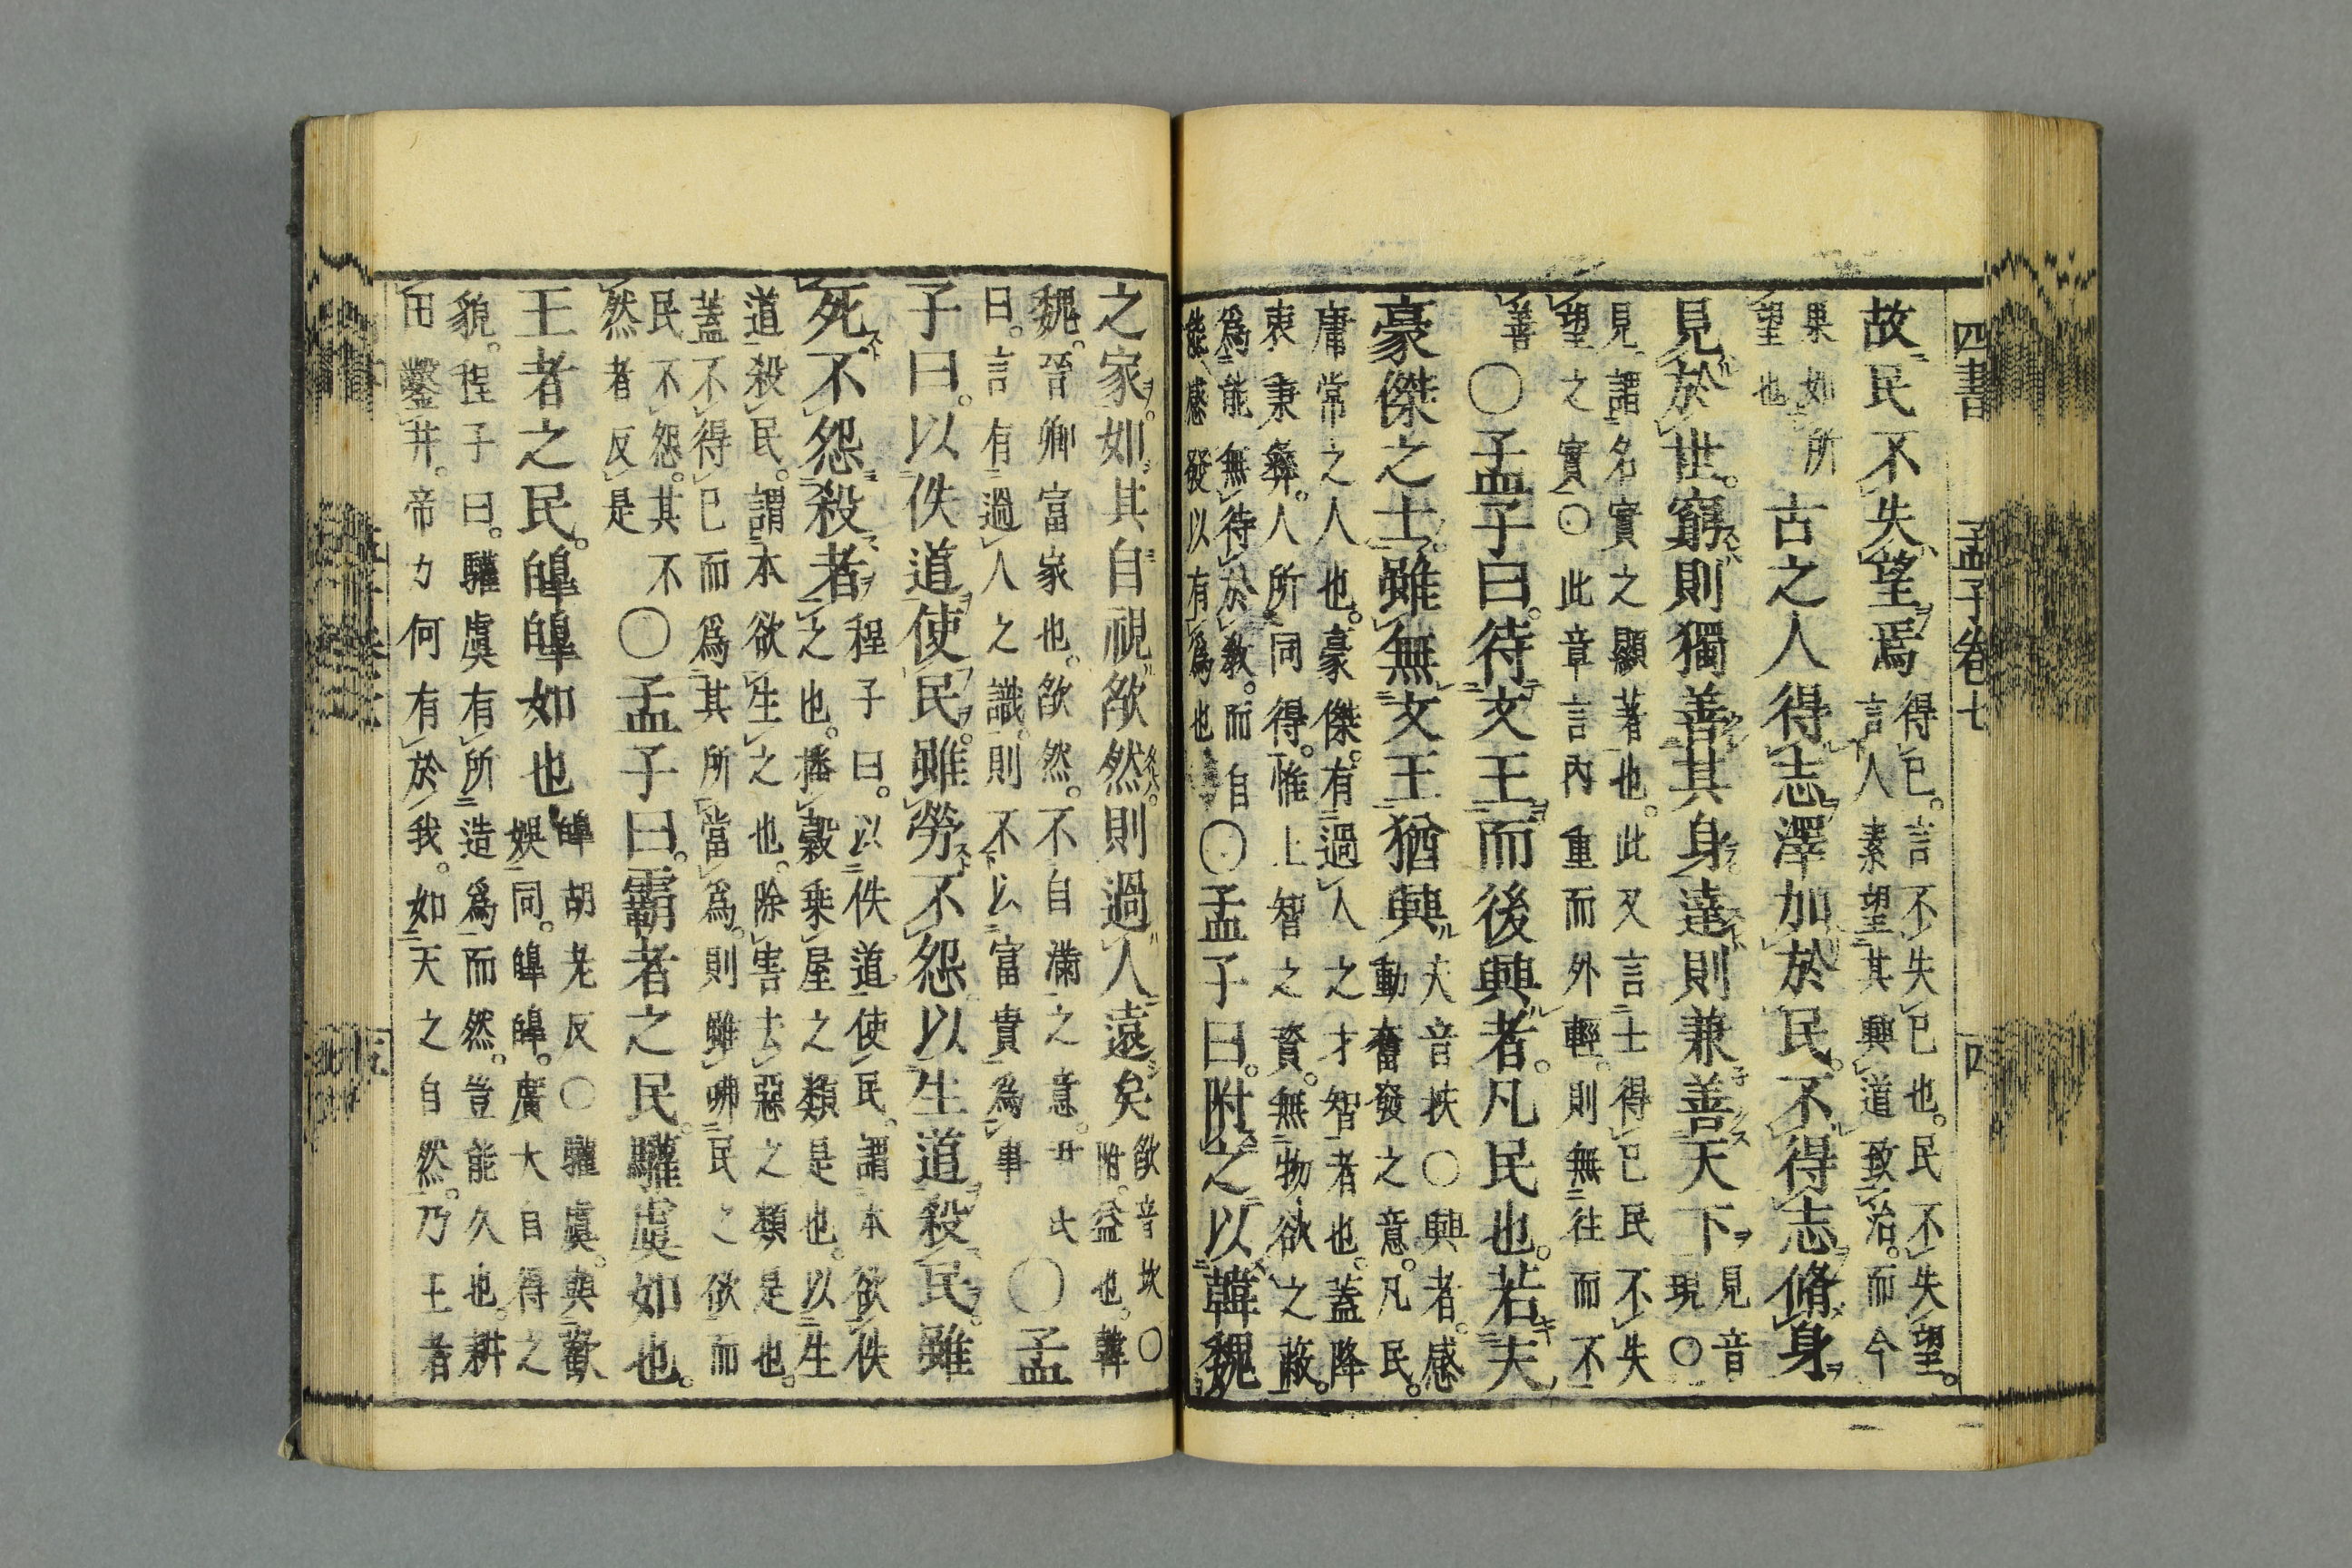 四書 孟子卷七 四
故民不失望焉
得已。言不失已也。民不失望。
言人素望其興道致治。而今
果如所
望也
古之人得志澤加於民。不得志脩身
見於世。窮則獨善其身。達則兼善天下
見音
現○
見。謂名實之顯著也。此又言士得已民不失
望之實○此章言內重而外輕。則無往而不
善
○孟子曰。待文王而後興者。凡民也。若夫
豪傑之士雖無文王猶興
夫音扶○興者。感
動奮發之意。凡民。
庸常之人也。豪傑。有過人之才智者也。蓋降
衷秉彝。人所同得。惟上智之資。無物欲之蔽。
爲能無待於教。而自
能感發以有爲也
○孟子曰。附之以韓魏
之家。如其自視欿然。則過人遠矣
欿音坎○
附。益也。韓
魏。晉卿富家也。欿然。不自滿之意。尹氏
曰。言有過人之識。則不以富貴爲事
○孟
子曰。以佚道使民。雖勞不怨。以生道殺民。雖
死不怨殺者
程子曰。以佚道使民。謂本欲佚
之也。播穀乗屋之類是也。以生
道殺民。謂本欲生之也。除害去惡之類是也。
蓋不得已而爲其所當爲。則雖咈民之欲而
民不怨。其不
然者反是
○孟子曰。霸者之民。驩虞如也。
王者之民。皥皥如也
皥胡老反○驩虞。與歡
娯同。皥皥。廣大自得之
貌。程子曰。驩虞有所造爲而然。豈能久也。耕
田鑿井。帝力何有於我。如天之自然。乃王者